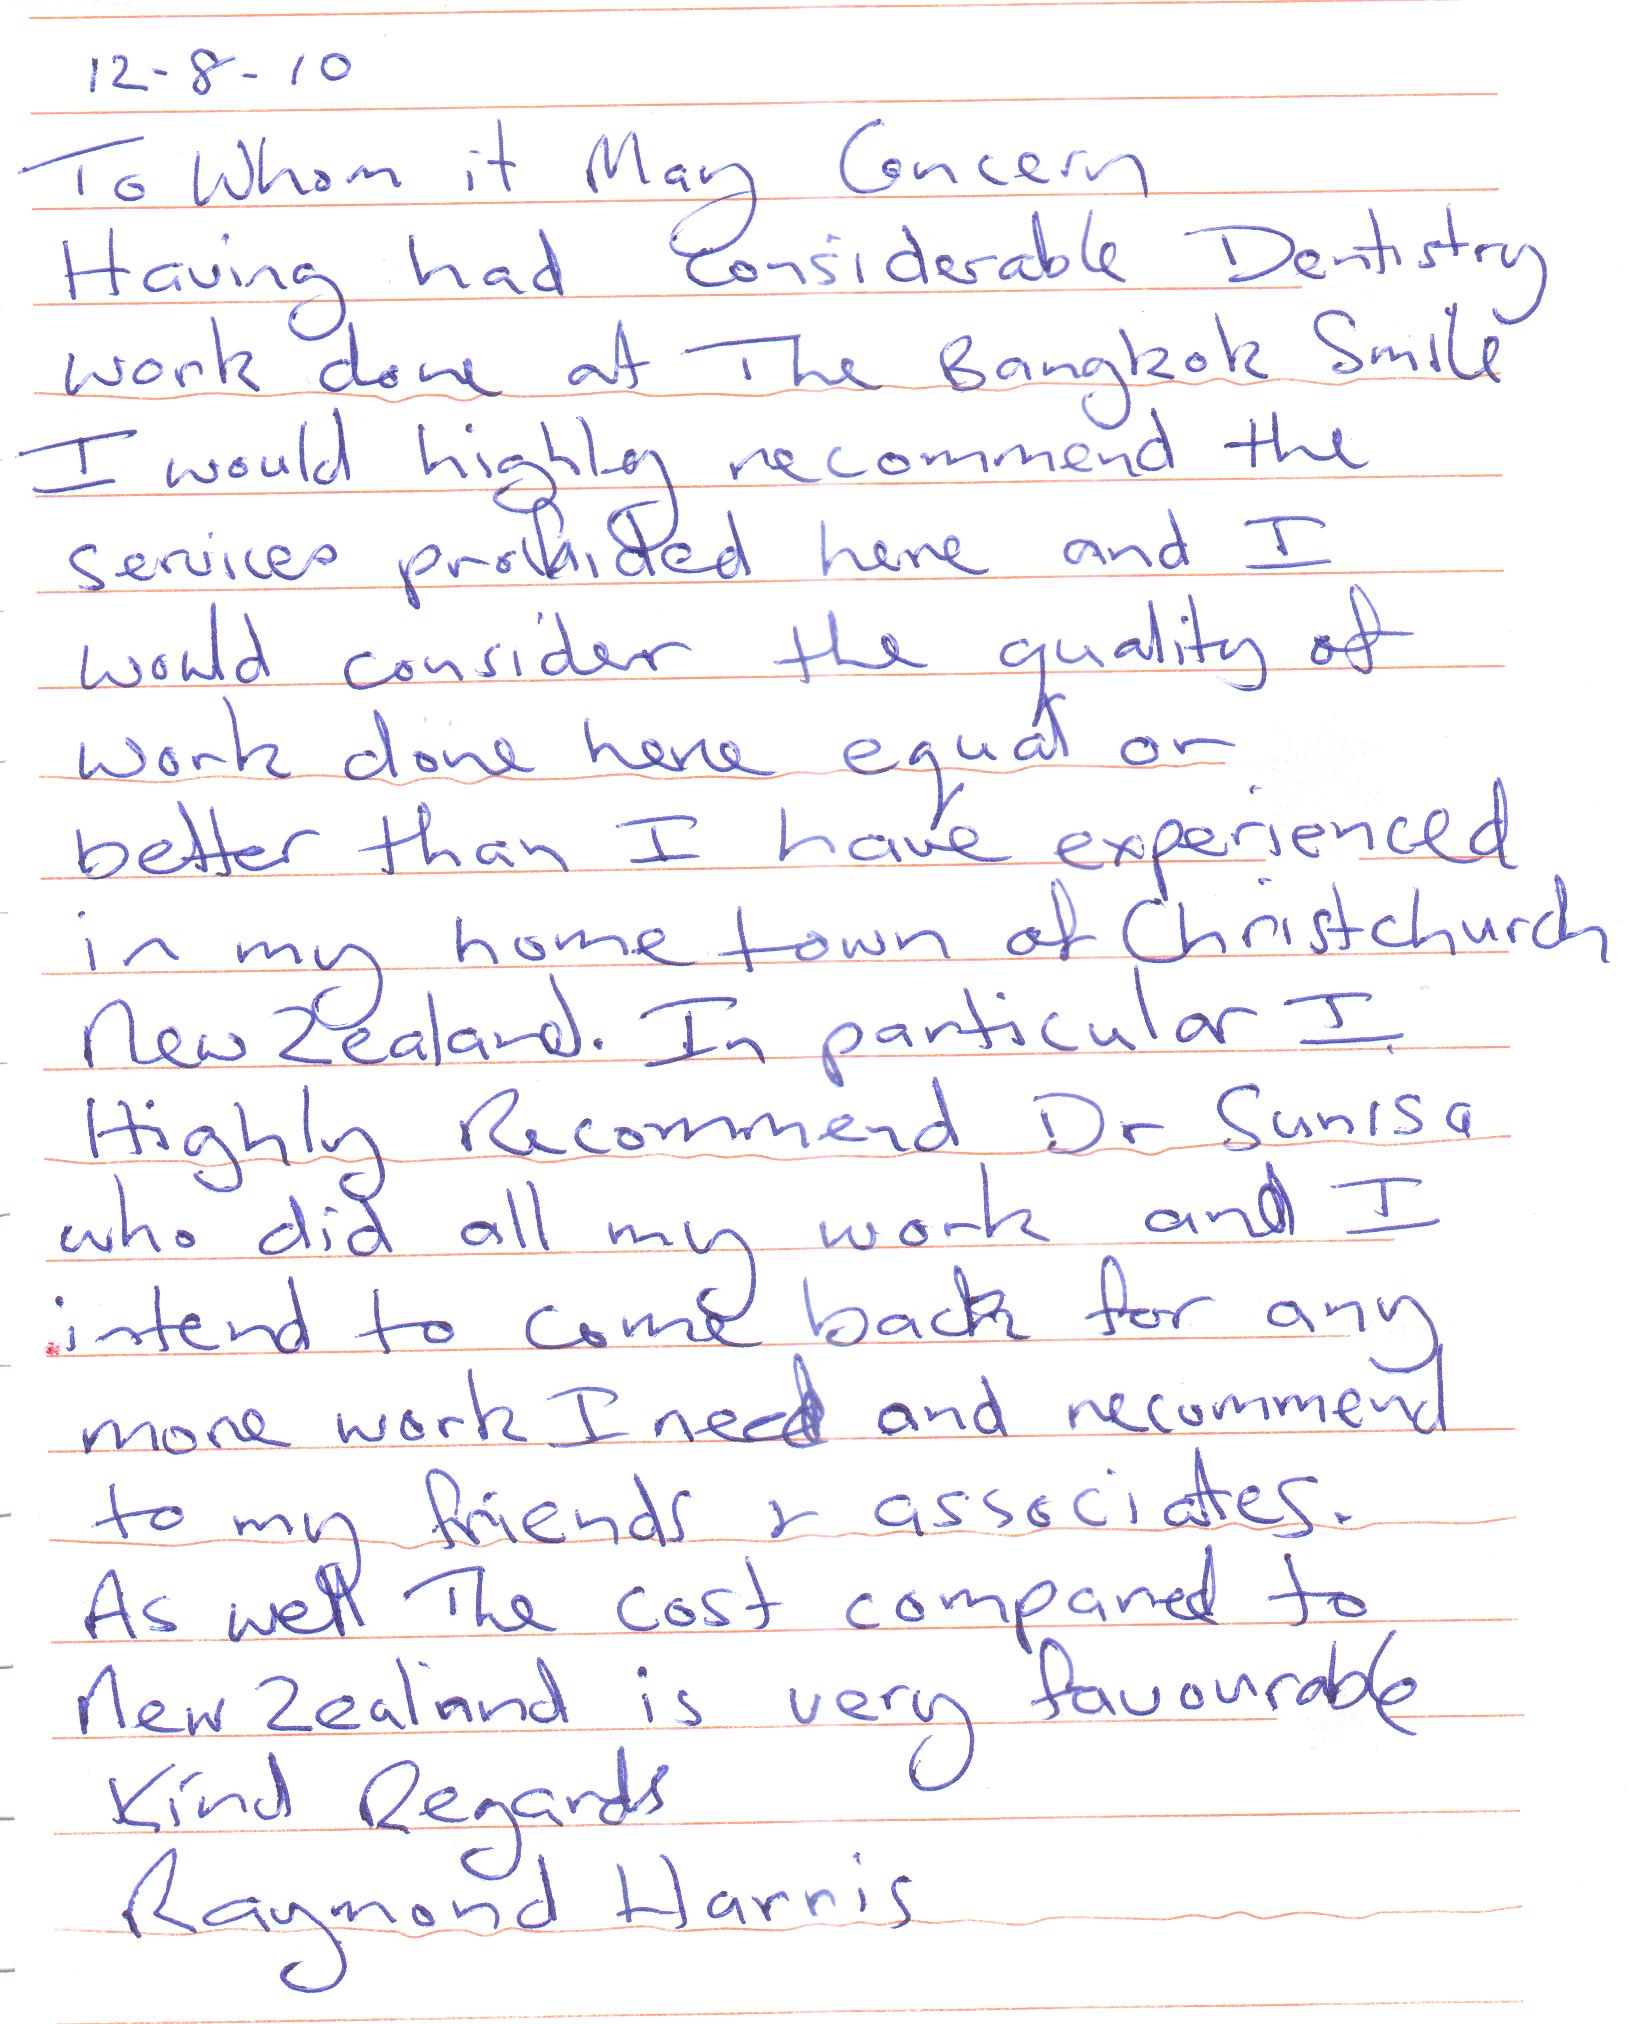 12-8-10
To Whom it May Concern
Having had considerable Dentistry
work done at The Bangkok Smile
I would highly recommend the
services provided here and I
would consider the quality of
work done here equal or
better than I have experienced
in my home town of Christchurch
New Zealand. In particular I
Highly Recommend Dr Sunisa
who did all my work and I
intend to come back for any
more work I need and recommend
to my friends & associates.
As well The cost compared to
New Zealand is very favourable
Kind Regards
Raymond Harris